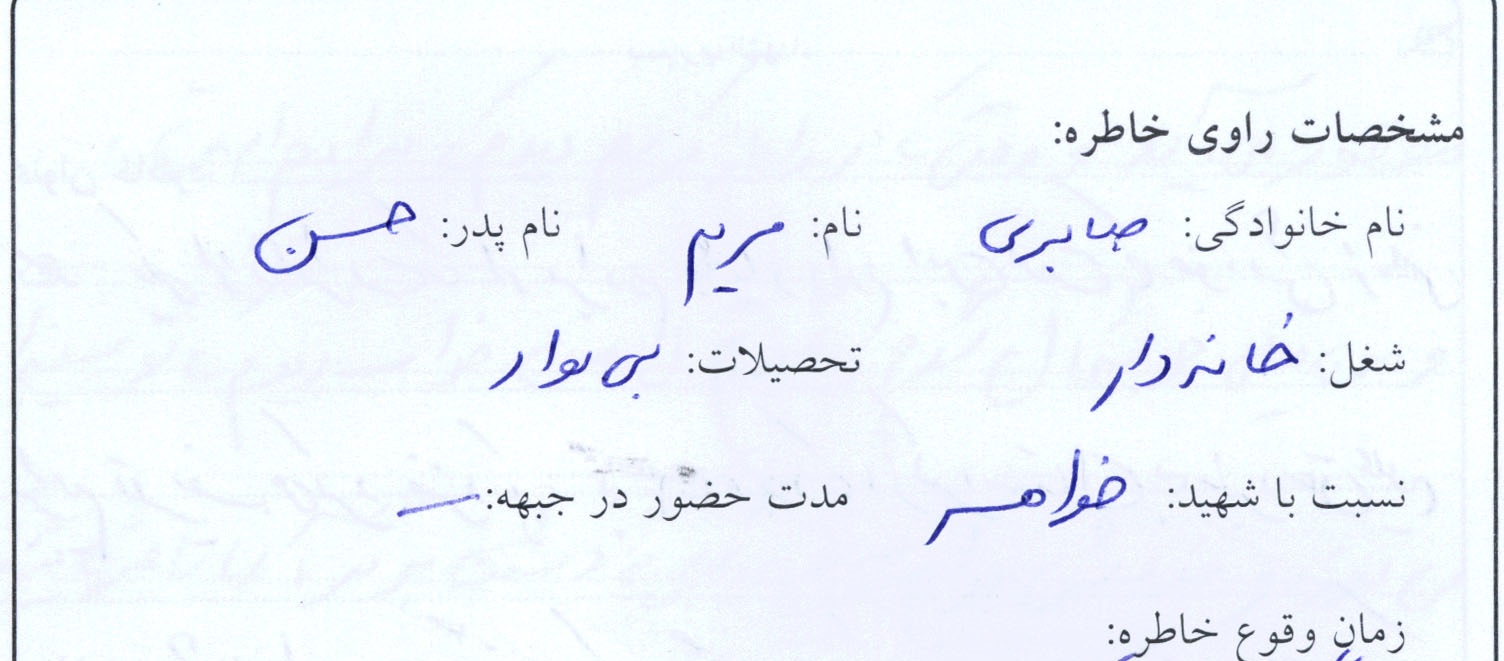 مشخصات راوی خاطره:
نام خانوادگی: صابری نام: مریم نام پدر: حسن
شغل: خانه دار تحصیلات: بی سواد
نسبت با شهید: خواهر مدت حضور در جبهه: ـ
زمان وقوع خاطره: